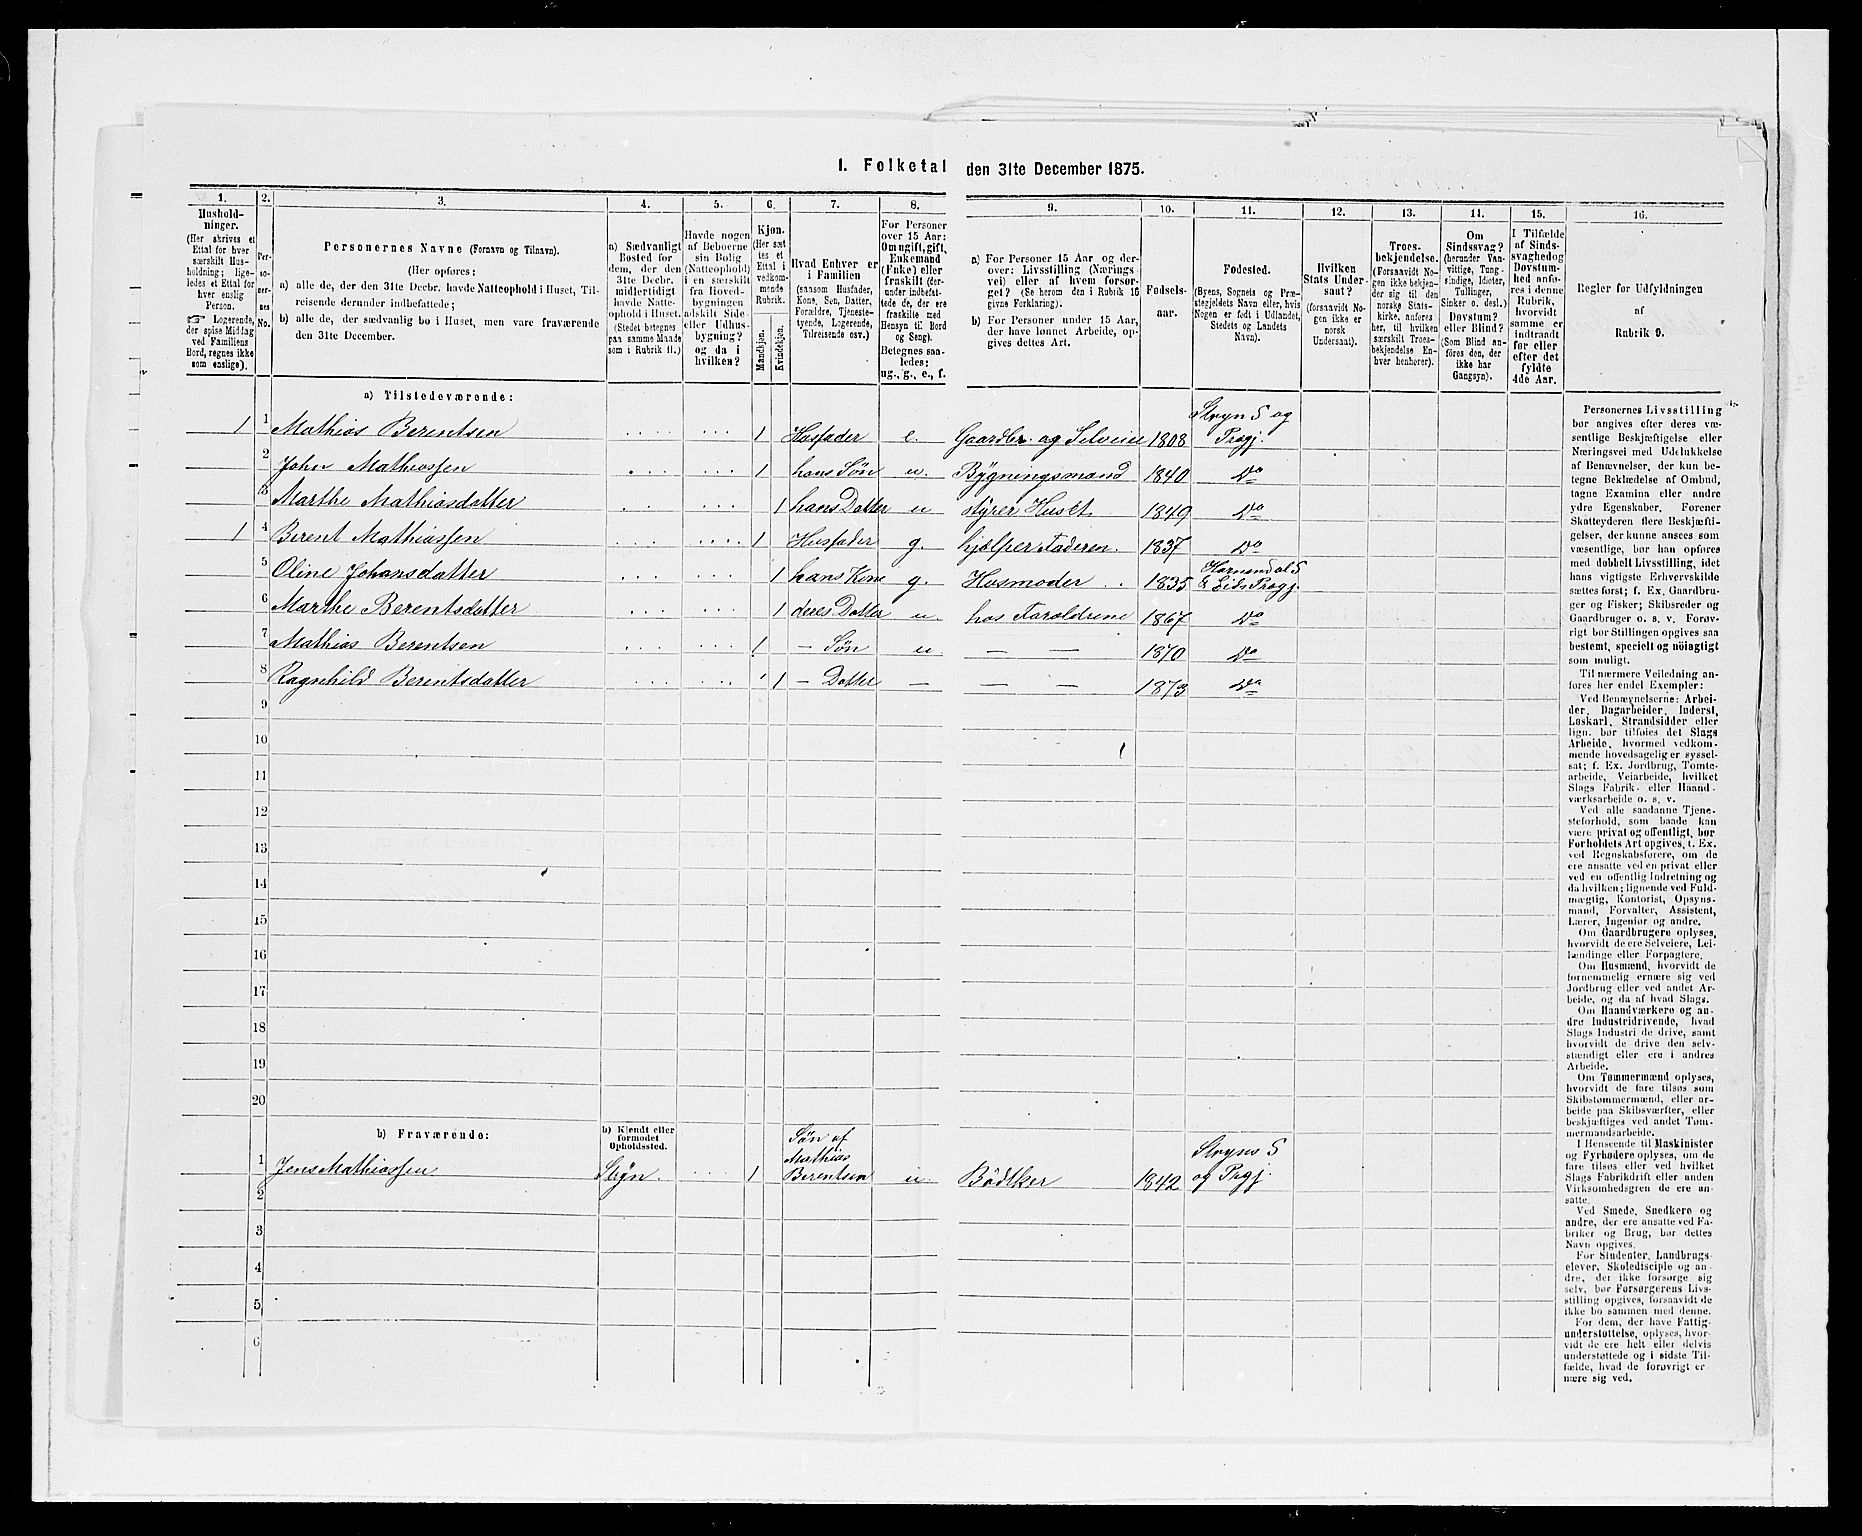 I. Folketal den 31te December 1875.
1. 2. 3. 4. 5. 6. 7. 8. 9. 10. 11. 12. 13. 14. 15. 16.
Hushold-
ninger.
(Her skrives et
Ettal for hver
særskilt Hus-
holdning; lige-
ledes et Ettal for
hver enslig
Person.
☞ Logerende,
der spise Middag
ved Familiens
Bord, regnes ikke
som enslige).
Per-
so-
ner-
nes
No.
Personernes Navne (Fornavn og Tilnavn).
(Her opføres:
a) alle de, der den 31te Decbr. havde Natteophold i Huset, Til-
reisende derunder indbefattede;
b) alle de, der sædvanlig bo i Huset, men vare fraværende
den 31te December.
a) Sædvanligt
Bosted for
dem, der den
31te Decbr.
midlertidigt
havde Natte-
ophold i Huset.
(Stedet betegnes
paa samme Maade
som i Rubrik 11.)
Havde nogen
af Beboerne
sin Bolig
(Natteophold)
i en særskilt
fra Hoved-
bygningen
adskilt Side-
eller Udhus-
bygning?
og da i
hvilken?
Kjøn.
(Her sæt
tes et
Ettal i
vedkom-
mende
Rubrik.
Mandkjøn.
Kvindekjøn.
Hvad Enhver er
i Familien
(saasom Husfader,
Kone, Søn, Datter,
Forældre, Tjeneste-
tyende, Logerende,
Tilreisende osv.)
For Personer
over 15 Aar:
Om ugift, gift,
Enkemand
(Enke) eller
fraskilt (der-
under indbefat-
tede de, der ere
fraskilte med
Hensyn til Bord
og Seng).
Betegnes saa-
ledes:
ug., g., e., f.
a) For Personer 15 Aar og der-
over: Livsstilling (Nærings-
vei) eller af hvem forsør-
get? (Se herom den i Rubrik 16
givne Forklaring).
b) For Personer under 15 Aar,
der have lønnet Arbeide, op-
gives dettes Art.
Fødsels-
aar.
Fødested.
(Byens, Sognets og Præ-
stegjeldets Navn eller, hvis
Nogen er født i Udlandet,
Stedets og Landets
Navn).
Hvilken
Stats Under-
saat?
(forsaavidt No-
gen ikke er
norsk
Undersaat).
Troes-
bekjendelse.
(Forsaavidt No-
gen ikke bekjen-
der sig til den
norske Stats-
kirke, anføres
her, til hvilken
særskilt Troes-
bekjendelse En-
hver henhører).
Om
Sindssvag?
(herunder Van-
vittige, Tung-
sindige, Idioter,
Tullinger,
Sinker o. desl.)
Døvstum?
eller Blind?
(Som Blind an-
føres den, der
ikke har
Gangsyn).
I Tilfælde
af Sinds-
svaghed og
Døvstum-
hed anfø-
res i denne
Rubrik,
hvorvidt
samme er
indtraadt
før eller
efter det
fyldte
4de Aar.
Regler for Udfyldningen
af
Rubrik 9.
a) Tilstedeværende:
1 1 Mathias Berentsen 1 Husfader e. Gaardbr. og Selveier 1808 Stryn S og Prægj.
2 John Mathiassen 1 hans Søn u. Bygningsmand 1840 Do
3 Marthe Mathiasdatter 1 hans Datter u styrer Huset 1849 Do
1 4 Berent Mathiassen 1 Husfader g. hjælper Faderen. 1837 Do
5 Oline Johansdatter 1 hans Kone g. Husmoder 1835 Hornindal S & Eids Prægj.
6 Marthe Berentsdatter 1 deres Datter u. hos Forældrene 1867 Do
7 Mathias Berentsen 1 — Søn u. — — 1870 Do
8 Ragnhild Berentsdatter 1 — Datter — — — 1873 Do
9
10
11
12
13
14
15
16
17
18
19
20
b) Fraværende:
b) Kjendt eller
formodet
Opholdssted.
1 Jens Mathiassen Stryn. 1 Søn af Mathias Berentsen u. Bödtker 1842 Stryns S og Prgj.
2
3
4
5
6
Personernes Livsstilling
bør angives efter deres væ-
sentlige Beskjæftigelse eller
Næringsvei med Udelukkelse
af Benævnelser, der kun be-
tegne Beklædelse af Ombud,
tagne Examina eller andre
ydre Egenskaber. Forener
Skatteyderen flere Beskjæfti-
gelser, der kunne ansees som
væsentlige, bør han opføres
med dobbelt Livsstilling, idet
hans vigtigste Erhvervskilde
sættes først; f. Ex. Gaardbru-
ger og Fisker; Skibsreder og
Gaardbruger o. s. v. Forøv-
rigt bør Stillingen opgives saa
bestemt, specielt og nöiagtigt
som muligt.
Til nærmere Veiledning an-
føres her endel Exempler:
Ved Benævnelserne: Arbei-
der, Dagarbeider, Inderst,
Løskarl, Strandsidder eller
lign. bør tilføies det Slags
Arbeide, hvormed vedkom-
mende hovedsagelig er syssel-
sat; f. Ex. Jordbrug, Tomte-
arbeide, Veiarbeide, hvilket
Slags Fabrik- eller Haand-
værksarbeide o. s. v.
Ved alle saadanne Tjene-
steforhold, som baade kan
være privat og offentligt, bør
Forholdets Art opgives, f. Ex.
ved Regnskabsførere, om de
ere ansatte ved en privat eller
ved en offentlig Indretning og
da hvilken; lignende ved Fuld-
mægtig, Kontorist, Opsyns-
mand, Forvalter, Assistent,
Lærer, Ingeniør og andre.
Om Gaardbrugere oplyses,
hvorvidt de ere Selveiere, Lei-
lændinge eller Forpagtere.
Om Husmænd, hvorvidt de
fornemmelig ernære sig ved
Jordbrug eller ved andet Ar-
beide, og da af hvad Slags.
Om Haandværkere og an-
dre Industridrivende, hvad
Slags Industri de drive, samt
hvorvidt de drive den selv-
stændigt eller ere i andres
Arbeide.
Om Tømmermænd oplyses,
hvorvidt de fare tilsøs som
Skibstømmermænd, eller ar-
beide paa Skibsværfter, eller
beskjæftiges ved andet Tøm-
mermandsarbeide.
I Henseende til Maskinister
og Fyrbødere oplyses, om de
fare tilsøs eller ved hvilket
Slags Fabrikdrift eller anden
Virksomhedsgren de ere an-
satte.
Ved Smede, Snedkere og
andre, der ere ansatte ved Fa-
briker og Brug, bør dettes
Navn opgives.
For Studenter, Landbrugs-
elever, Skoledisciple og an-
dre, der ikke forsørge sig
selv, bør Forsørgerens Livs-
stilling opgives, forsaavidt de
ikke bo sammen med denne.
For dem, der have Fattig-
understøttelse, oplyses, hvor-
vidt de ere helt eller delvis
understøttede og i sidste Til-
fælde, hvad de forøvrigt er
nære sig ved.